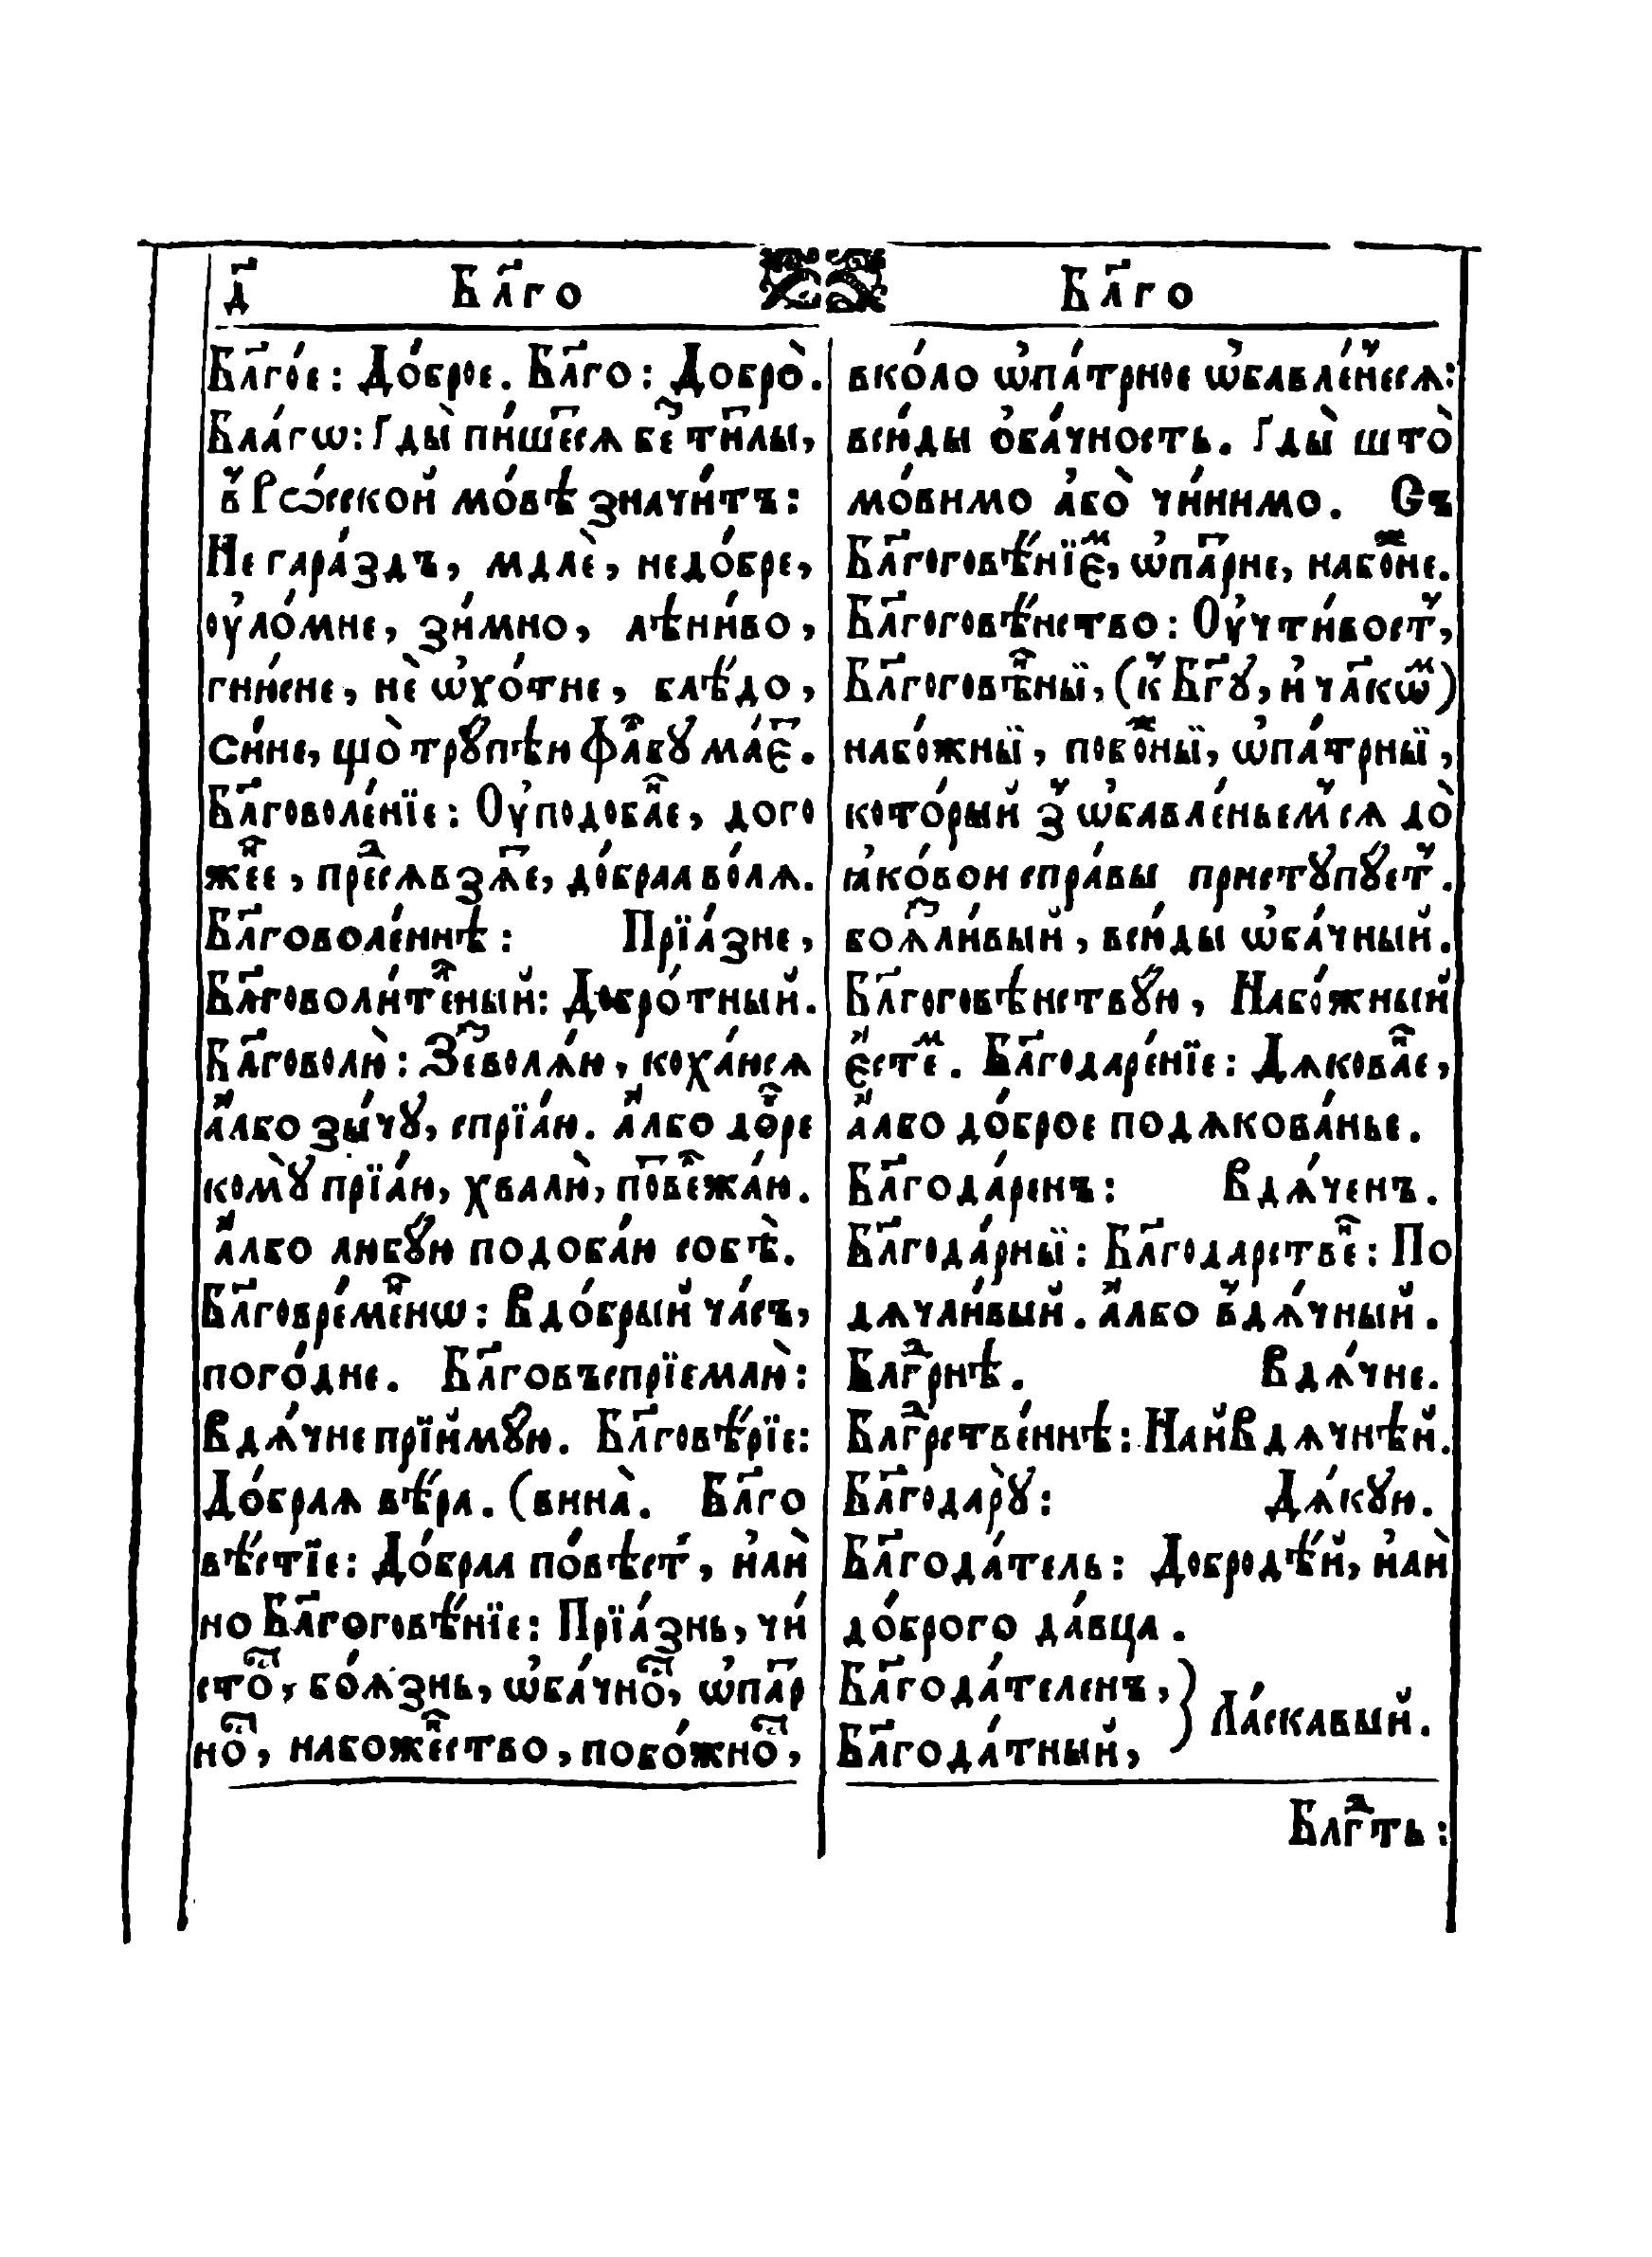 д҃ Бл҃го Бл҃го
Бл҃го́е: До́брое. Бл҃го: Добро̀.
Бла́гѡ: Ґды̀ пи́шеⷭ҇сѧ беⷥ҇ ти́ⷭ҇лы,
в̾ Рѡ́сской мо́вѣ значи́тъ:
Не гара́здъ, мдлѐ, недо́бре,
ᲂу҆ло́мне, зи́мно, лѣни́во,
гни́сне, нѐ ѡ҆хо́тне, блѣ́до,
си́не, що̀ трꙋ́пѣи фаⷬ҇бꙋ ма́єⷭ҇.
Бл҃говоле́нїе: Оу҆подобаⷩ҇е, дого
жеⷩ҇е, преⷣсѧвзѧⷭ҇е, до́браа во́лѧ.
Бл҃говоле́ннѣ: Прїа́зне,
Бл҃говоли́теⷧ҇ный: Добро́тный.
Бл҃говолю̀: Зеⷥ҇волѧ́ю, коха́юсѧ
а҆́лбо зы́чꙋ, спрїа́ю. а҆́лбо доⷠ҇ре
комꙋ̀ прїа́ю, хвалю̀, поⷭ҇веⷧ҇жа́ю.
а҆́лбо любꙋ́ю подоба́ю собѣ̀.
Бл҃говре́меⷩ҇нѡ: В до́брый ча́съ,
пого́дне. Бл҃говъспрїемлю̀:
Вдѧ́чне прїймꙋ́ю. Бл҃говѣ́рїе:
До́браѧ вѣ́ра. (вина̀. Бл҃го
вѣ́стїе: До́браа по́вѣст̾, и҆лю̀
но Бл҃гоговѣ́нїе: Прїа́знь, чи́
стоⷭ҇, боѧ́знь, ѡ҆ба́чноⷭ҇, ѡ҆па́ⷭ҇р
ноⷭ҇, набожеⷩ҇ство, побо́жноⷭ҇,
вко́ло ѡ҆па́трное ѡ҆бавле́н̾есѧ:
всю́ды ѻ҆ба́чность. Ґды̀ што̀
мо́вимо а҆бо̀ чи́нимо. Съ
Бл҃гоговѣ́нїєⷨ, ѡ҆па́рⷭ҇не, набоⷤне.
Бл҃гоговѣ́нство: Оу҆чти́вост̾,
Бл҃гоговѣⷩ҇нӹ, (к̾ Бг҃ꙋ, и҆ чл҃кѡⷨ)
набо́жнӹ, повоⷤнӹ, ѡ҆па́трнӹ,
кото́рый з̾ ѡ҆бавле́ньем̾ сѧ до̀
ꙗ҆ко́вои спра́вы пристꙋпꙋ́ет̾.
боѧⷥ҇ли́вый, всю́ды ѡ҆ба́чный.
Бл҃гоговѣнствꙋ́ю, Набо́жный
є҆́стеⷨ. Бл҃годаре́нїе: Дѧковаⷩ҇е,
а҆́лбо до́брое подѧкова́нье.
Бл҃года́ренъ: Вдѧ́ченъ.
Бл҃года́рнӹ: Бл҃годарствеⷩ҇: По
дѧчли́вый. а҆́лбо в̾дѧ́чный.
Блгⷣрнѣ. Вдѧ́чне.
Блгⷣрстве́ннѣ: НайВдѧчнѣй.
Бл҃годарꙋ̀: Дѧ́кꙋю.
Бл҃года́тель: Добродѣ́й, и҆лю̀
до́брого да́вца.
Бл҃года́теленъ, } Ла́скавый.
Бл҃года́тный,
Блгⷣть: